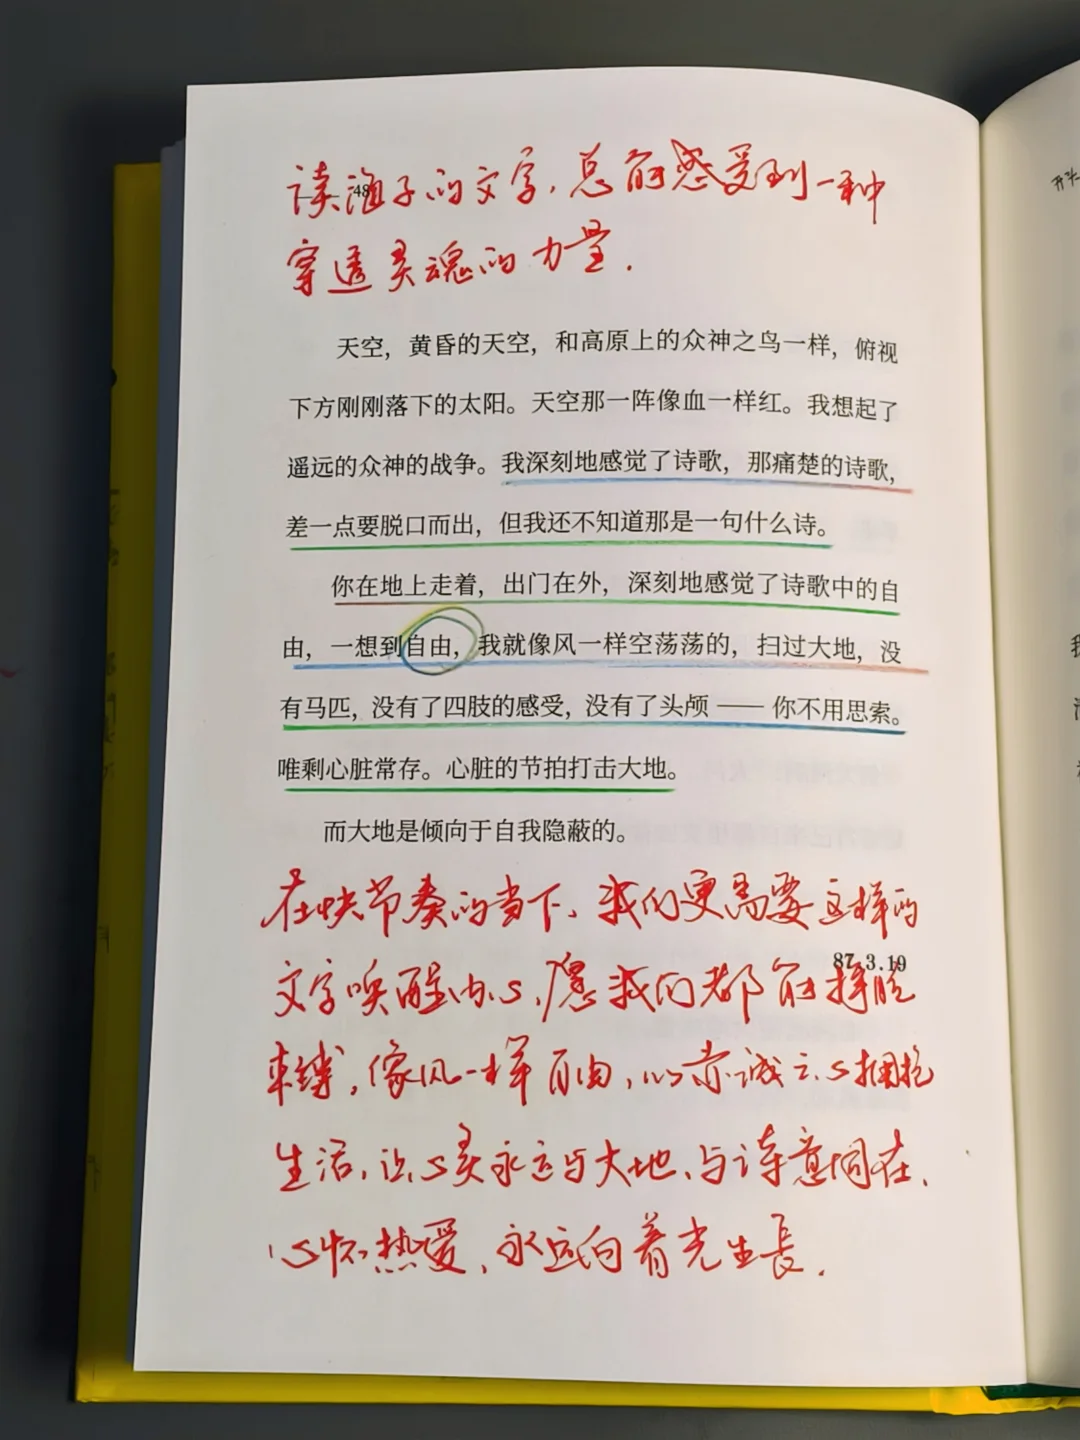 48
读海子的文字，总能感受到一种
穿透灵魂的力量.
天空，黄昏的天空，和高原上的众神之鸟一样，俯视
下方刚刚落下的太阳。天空那一阵像血一样红。我想起了
遥远的众神的战争。我深刻地感觉了诗歌，那痛楚的诗歌，
差一点要脱口而出，但我还不知道那是一句什么诗。
你在地上走着，出门在外，深刻地感觉了诗歌中的自
由，一想到自由，我就像风一样空荡荡的，扫过大地，没
有马匹，没有了四肢的感受，没有了头颅 —— 你不用思索。
唯剩心脏常存。心脏的节拍打击大地。
而大地是倾向于自我隐蔽的。
在快节奏的当下、我们更需要这样的
87.3.19
文字唤醒内心，愿我们都能挣脱
束缚，像风一样自由，以赤诚之心拥抱
生活，让心灵永远与大地、与诗意同在，
心怀热爱，永远向着光生長.
开头